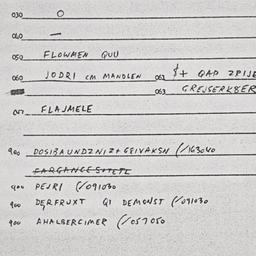 030 O
040 —
050 FLOWMEN QUU
060 JODRI CM MANDLEN 062 $+ QAP ZPIJE
063 GREJSERKBER
FLAJMELE
900 DOSIBAUNDZNIZ+GEIVAKSN (/163040
900 PEJRI (/091030
900 DERFRUXT QI DEMONST (/091030
900 AHALBERCIMER (/057050